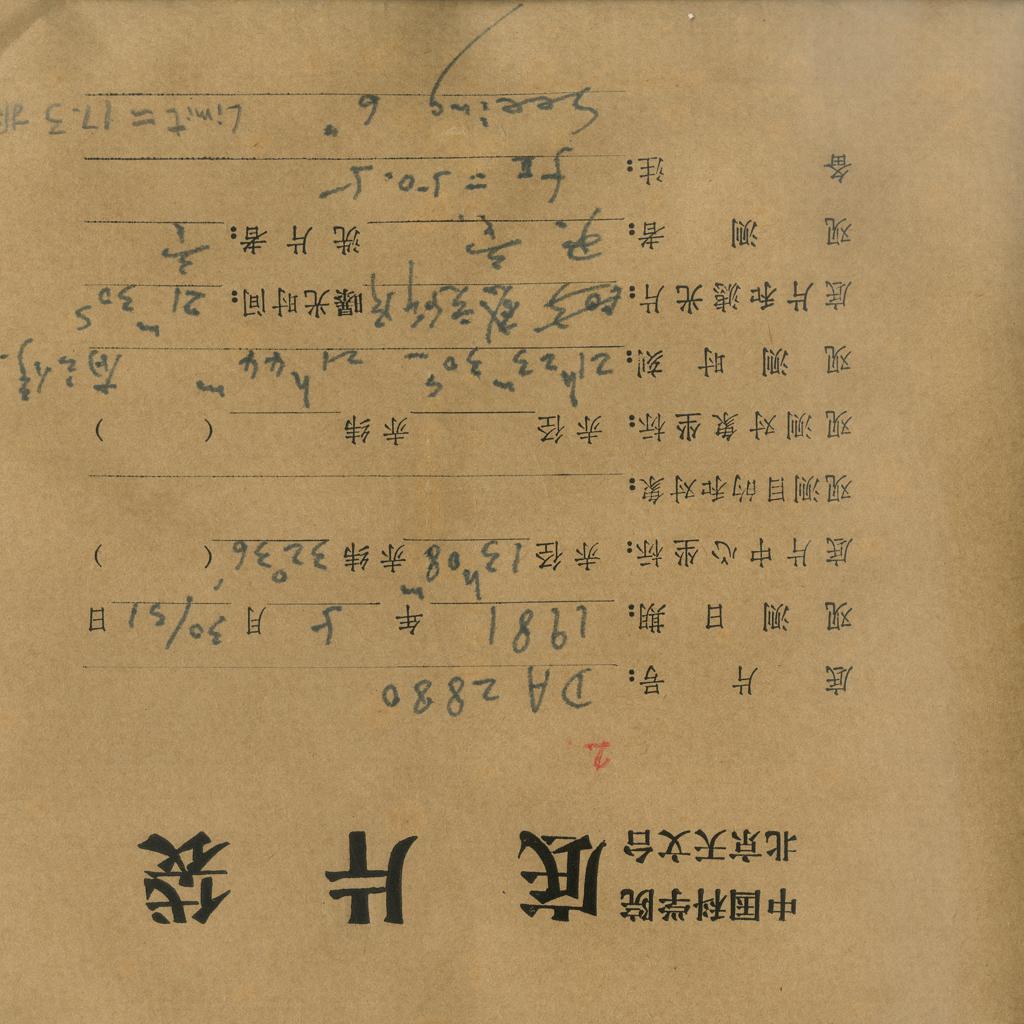 中国科学院
北京天文台
底 片 袋
2.
底片号: DA 2880
观测日期: 1981 年 5 月 30/31 日
底片中心坐标: 赤径 13h08m 赤纬 32°36′ ( )
观测目的和对象:
观测对象坐标: 赤径 赤纬 ( )
观测时刻: 21h23m30s — 21h44m
底片和滤光片: 曝光时间: 21m30s
观测者: 洗片者:
备注: fⅡ = 50.5
Seeing 6" Limit = 17.3